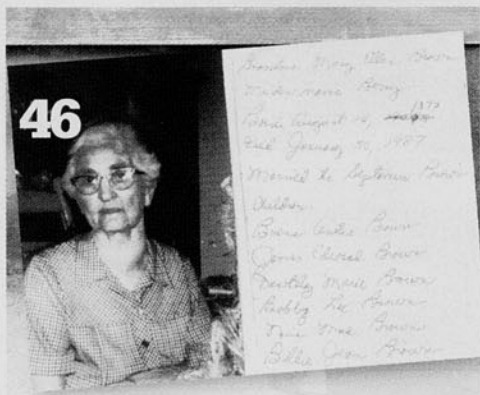 46
Grandma Mary Ellen Brown
Maiden name
Born August 14, 1893
Died January 30, 1987
Married to Brown
Children
Brown
James Edward Brown
Dorothy Marie Brown
Bobby Lee Brown
Mae Brown
Billie Jean Brown